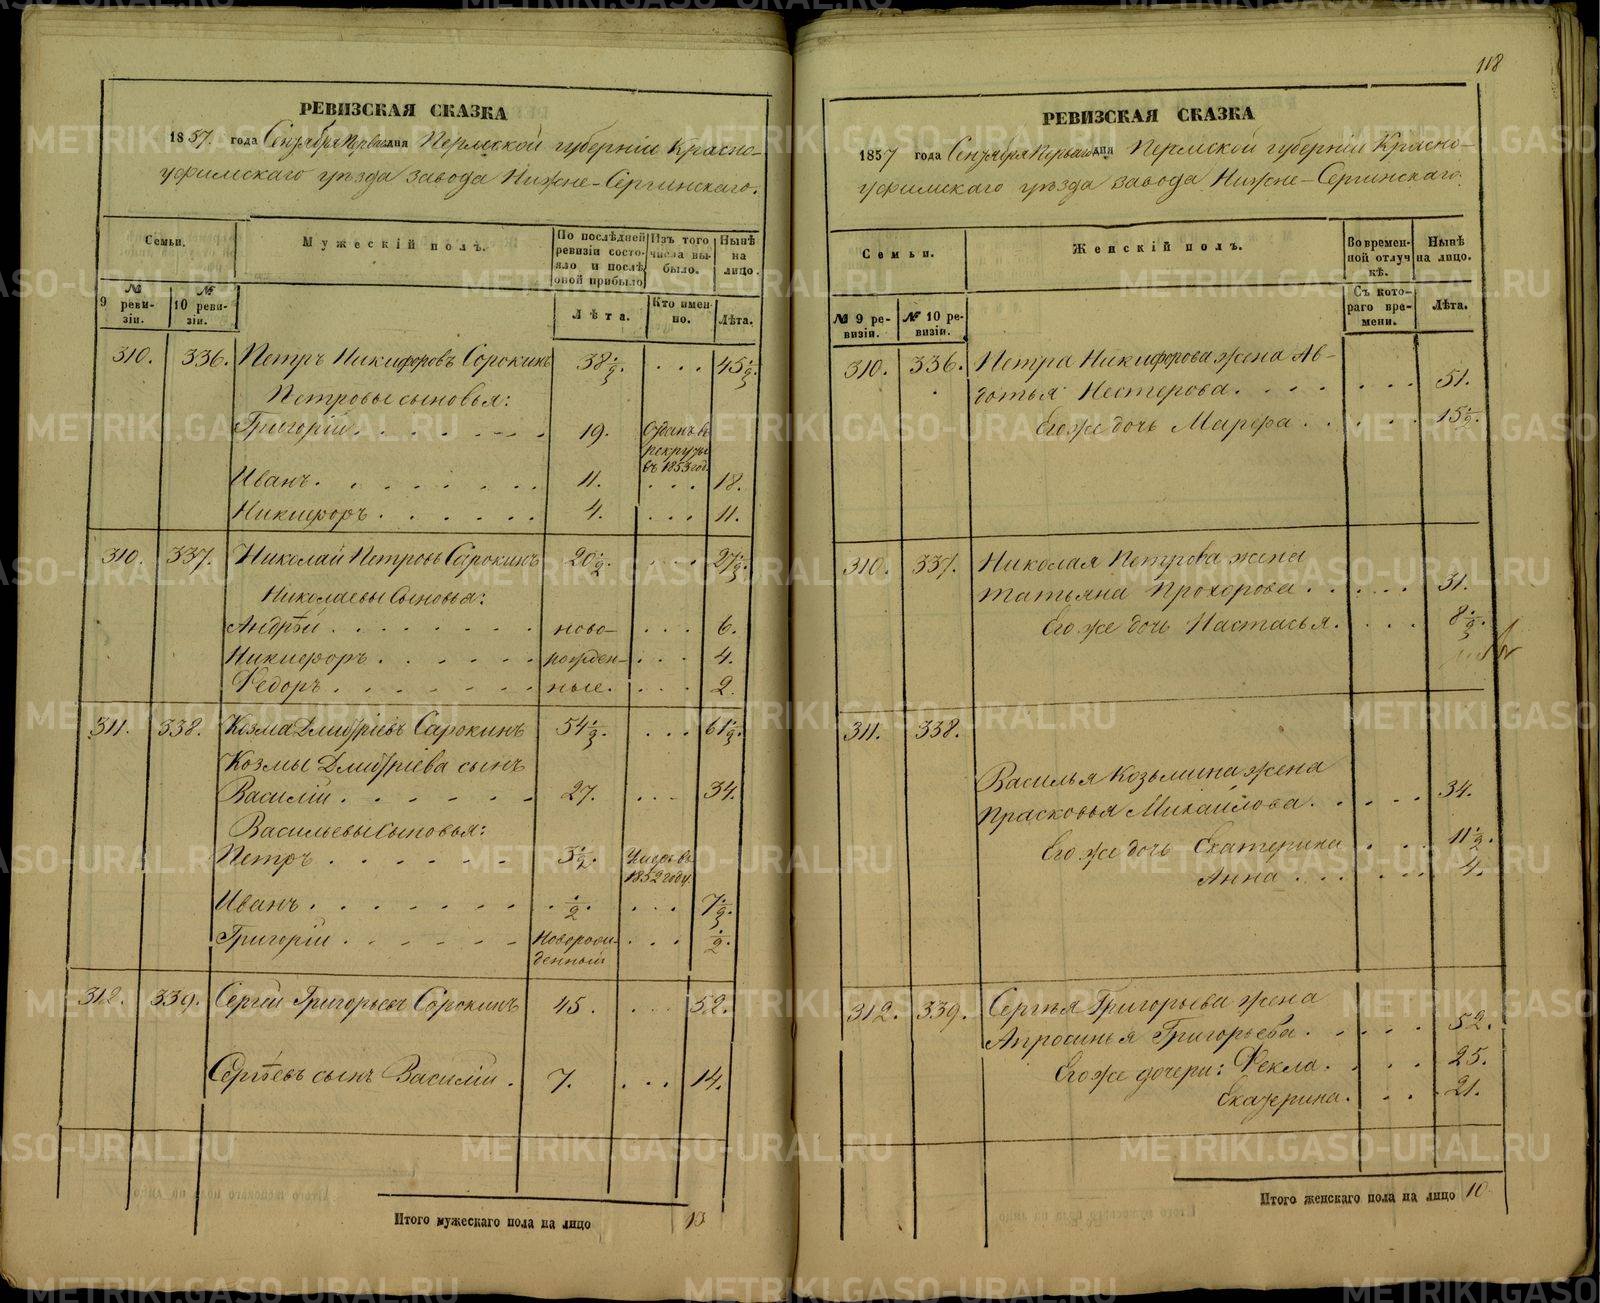 РЕВИЗСКАЯ СКАЗКА
1857 года Сентября Перваго дня Пермской губерніи Красно-
уфимскаго уѣзда завода Нижне-Сергинскаго.
Семьи.
Мужескій полъ.
По послѣдней ревизіи состояло и послѣ оной прибыло
Изъ того числа выбыло.
Нынѣ на лицо.
№ 9 ревизіи.
№ 10 ревизіи.
Лѣта.
Кто именно.
Лѣта.
310. 336. Петръ Никифоровъ Сорокинъ 38 1/2. . . . 45 1/2.
Петровы сыновья:
Григорій . . . . . . . 19. Отданъ въ рекруты въ 1853 год.
Иванъ . . . . . . . 11. . . . 18.
Никифоръ . . . . . . 4. . . . 11.
310. 337. Николай Петровъ Сорокинъ 20 1/2. . . . 27 1/2.
Николаевы сыновья:
Андрей . . . . . . . ново- . . . 6.
Никифоръ . . . . . . рожден- . . . 4.
Федоръ . . . . . . . ные. . . . 2.
311. 338. Козма Дмитріевъ Сарокинъ 54 1/2. . . . 61 1/2.
Козмы Дмитріева сынъ
Василій . . . . . . 27. . . . 34.
Васильевы сыновья:
Петръ . . . . . . 3 1/2. Умеръ въ 1852 году
Иванъ . . . . . . . 1/2. . . . 7 1/2.
Григорій . . . . . . Новорожденный . . . 1/2.
312. 339. Сергей Григорьевъ Сорокинъ 45. . . . 52.
Сергѣевъ сынъ Василій . 7. . . . 14.
Итого мужескаго пола на лицо 13
118
РЕВИЗСКАЯ СКАЗКА
1857 года Сентября Перваго дня Пермской губерніи Красно-
уфимскаго уѣзда завода Нижне-Сергинскаго.
Семьи.
Женскій полъ.
Во временной отлучкѣ.
Нынѣ на лицо.
№ 9 ревизіи.
№ 10 ревизіи.
Съ котораго времени.
Лѣта.
310. 336. Петра Никифорова жена Ав-
дотья Нестерова. . . . . . . 51.
Его же дочь Марфа . . . . . . 15 1/2.
310. 337. Николая Петрова жена
Татьяна Прохорова . . . . . 31.
Его же дочь Настасья. . . . . 8 1/2.
311. 338.
Василья Козьмина жена
Прасковья Михайлова. . . . . 34.
Его же дочь Екатерина . . . . 11 1/2.
Анна . . . . . . 4.
312. 339. Сергѣя Григорьева жена
Апросинья Григорьева. . . . . 52.
Его же дочери: Фекла. . . . . 25.
Екатерина. . . . 21.
Итого женскаго пола на лицо 10
METRIKI.GASO-URAL.RU